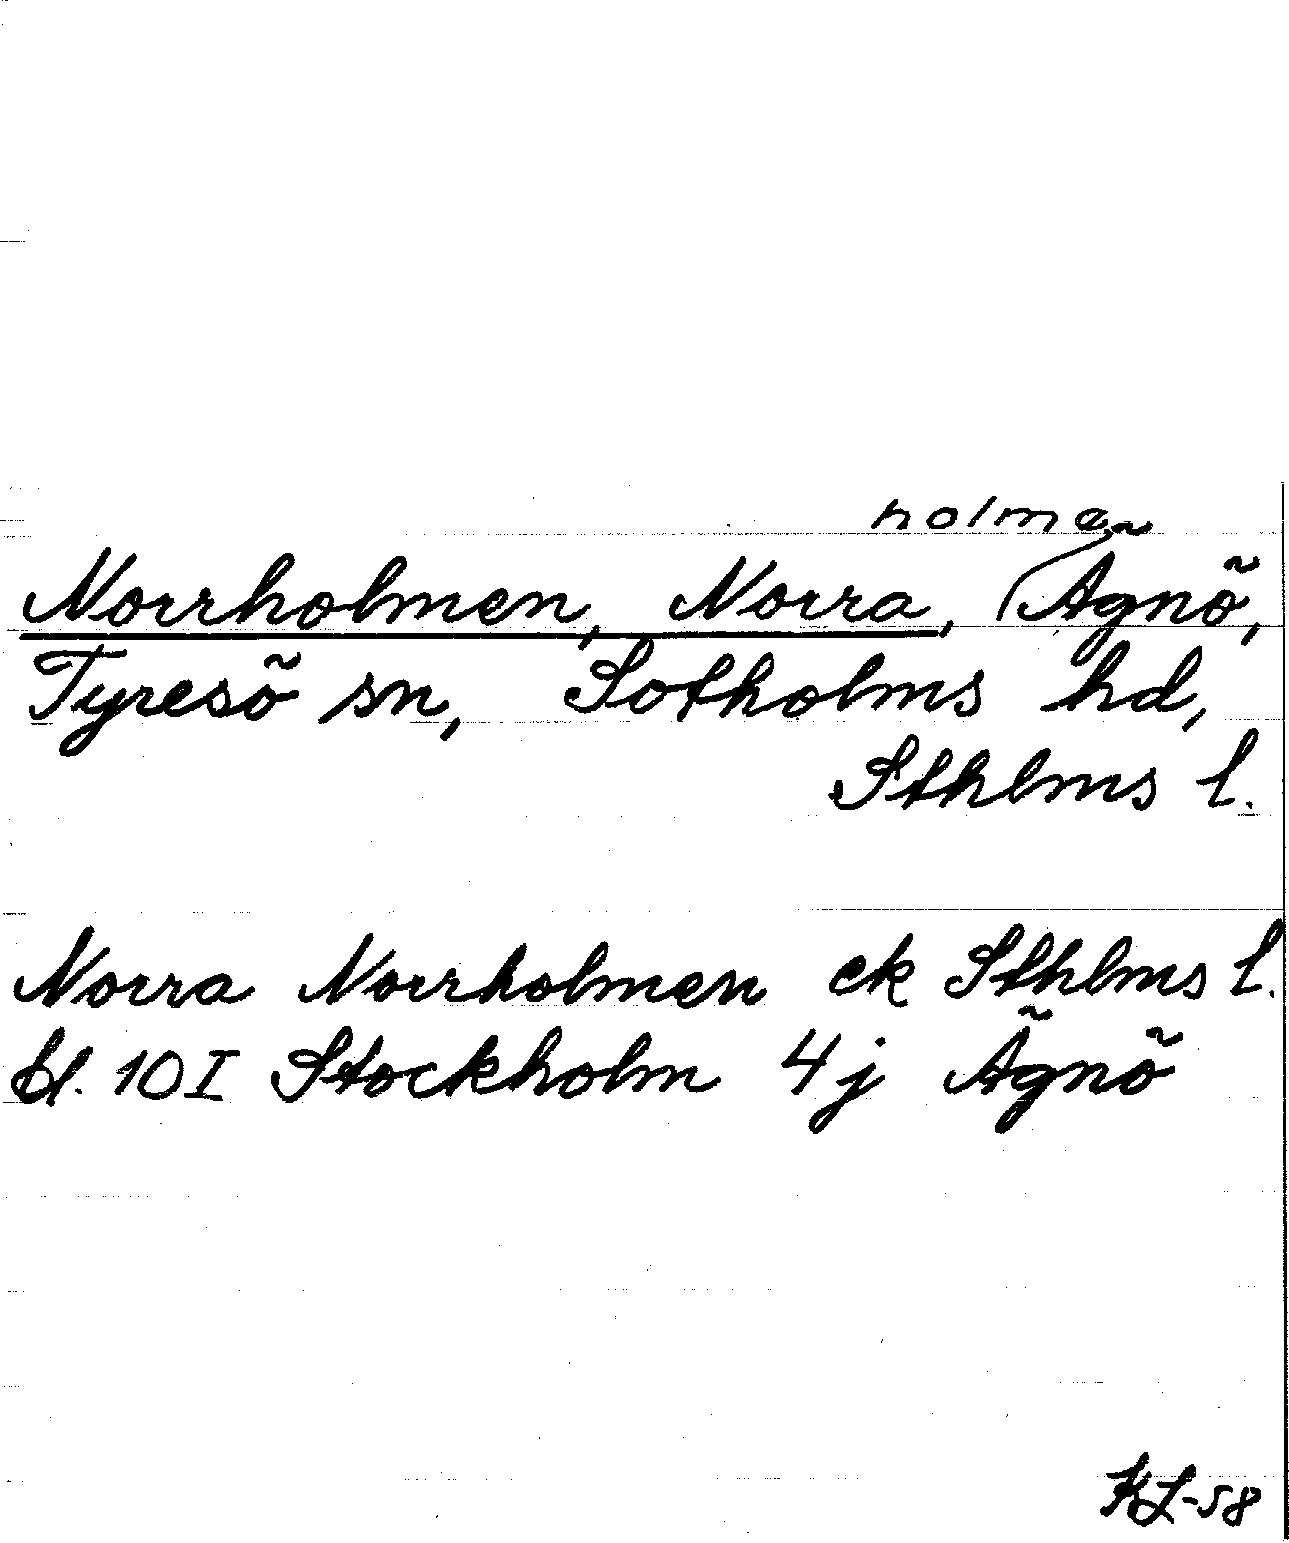 holme
Norrholmen, Norra, (Ägnö,
Tyresö sn, Sotholms hd,
Sthlms l.
Norra Norrholmen ek Sthlms l.
bl. 10 I Stockholm 4j Ägnö
KL-58